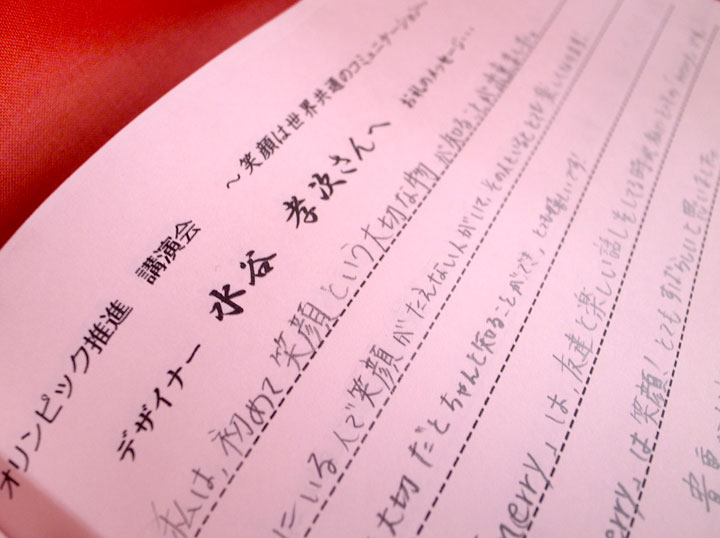 オリンピック推進 講演会 ～笑顔は世界共通のコミュニケーション～
デザイナー 水谷 孝次さんへ お礼のメッセージ…
私は、初めて笑顔という大切な物が知ることが出来ました。
にいる人で笑顔がたえない人がいて、その人といるととても楽しくなります!
大切だとちゃんと知ることができ、とても嬉しいです!
merry」は、友達と楽しい話しをしてる時
erry」は笑顔!とてもすばらしいと思いました。